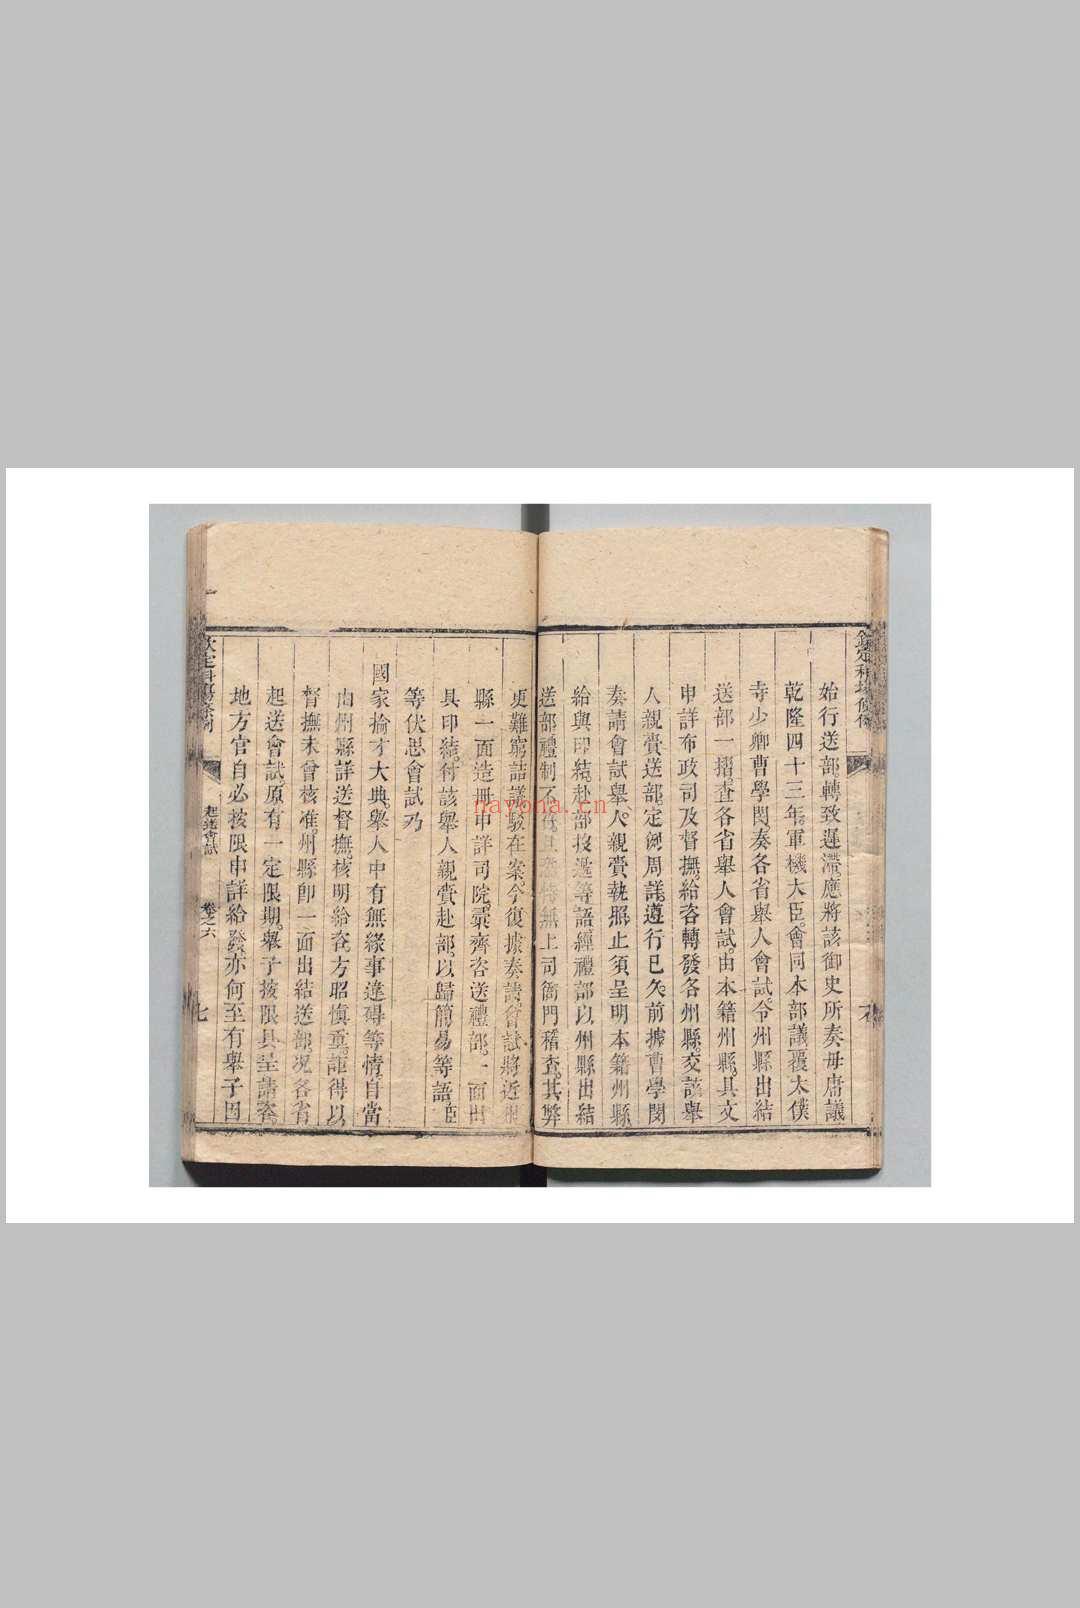 欽定科場條例
始行送部。轉致遲滯。應將該御史所奏毋庸議
乾隆四十三年。軍機大臣。會同本部議覆太僕
寺少卿曹學閔奏各省舉人會試。令州縣出結
送部一摺。查各省舉人會試。由本籍州縣。具文
申詳布政司及督撫。給咨轉發各州縣。交該舉
人親賫送部。定例周詳。遵行已久。前據曹學閔
奏請會試舉人。親賫執照。止須呈明本籍州縣
給與印結。赴部投遞等語。經禮部以州縣出結
送部禮制不 無上司衙門稽查。其弊
更難窮詰議駁在案。今復據奏請。會試將近
縣一面造冊申詳司院。彙齊咨送禮部。一面出
具印結。付該舉人親賫赴部。以歸簡易等語。臣
等伏思會試乃
國家掄才大典。舉人中有無緣事違碍等情。自當
由州縣詳送督撫。核明給咨。方昭慎重。詎得以
督撫未曾核准。州縣卽一面出結送部。况各省
起送會試。原有一定限期。舉子按限具呈請咨。
地方官自必按限申詳給發。亦何至有舉子因
欽定科場條例
起送會試
卷之六
七
nayona.cn